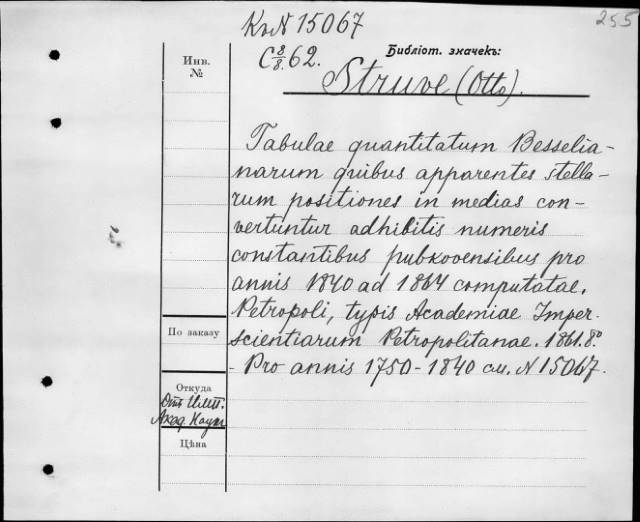 Къ N 15067
255
С 8/8. 62.
Библіот. значекъ:
Struve (Otto).
Инв.
№
Tabulae quantitatum Besselia-
narum quibus apparentes stella-
rum positiones in medias con-
vertuntur adhibitis numeris
constantibus pulkovensibus pro
annis 1840 ad 1864 computatae.
Petropoli, typis Academiae Imper.
scientiarum Petropolitanae. 1861. 8°
- Pro annis 1750-1840 см. N 15067.
По заказу
Откуда
Отъ Имп.
Акад. Наукъ
Цѣна